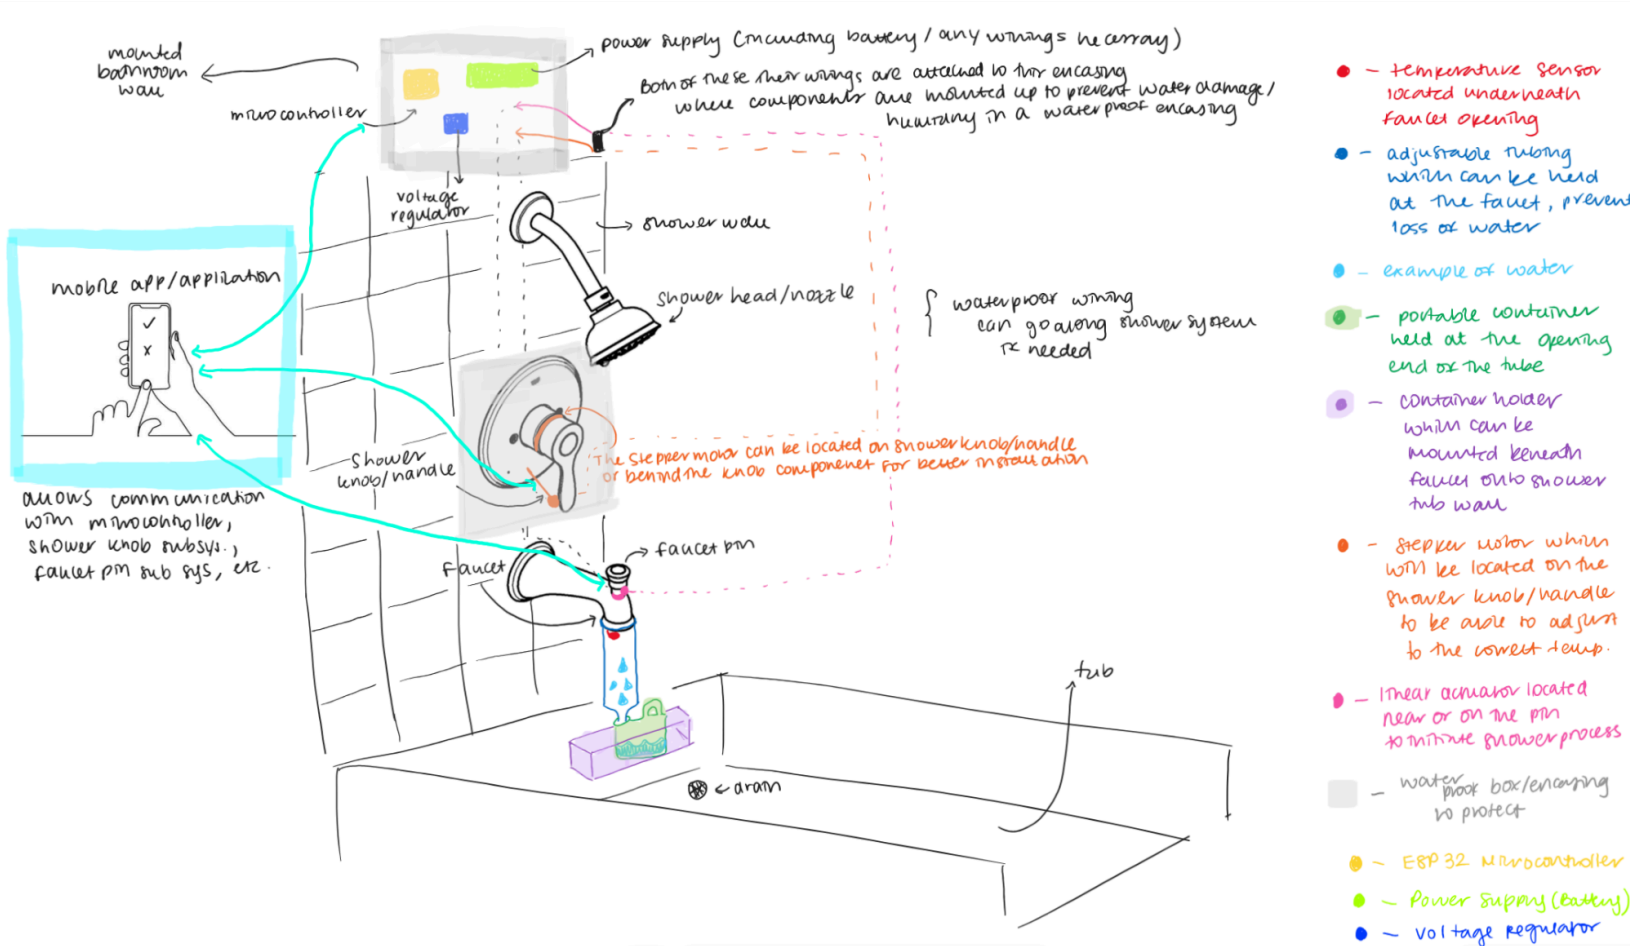 mounted
bathroom
wall
power supply (including battery / any wirings necessary)
Both of these their wirings are attached to this encasing
where components are mounted up to prevent water damage/
humidity in a waterproof encasing
microcontroller
voltage
regulator
shower wall
mobile app/application
shower head/nozzle
waterproof wiring
can go along shower system
if needed
shower
knob/handle
The stepper motor can be located on shower knob/handle
or behind the knob component for better installation
allows communication
with microcontroller,
shower knob subsys.,
faucet pin sub sys, etc.
faucet
faucet pin
tub
drain
- temperature sensor
located underneath
faucet opening
- adjustable tubing
which can be held
at the faucet, prevent
loss of water
- example of water
- portable container
held at the opening
end of the tube
- container holder
which can be
mounted beneath
faucet onto shower
tub wall
- Stepper motor which
will be located on the
shower knob/handle
to be able to adjust
to the correct temp.
- linear actuator located
near or on the pin
to initiate shower process
- water
proof box/encasing
to protect
- ESP32 Microcontroller
- Power Supply (Battery)
- voltage regulator